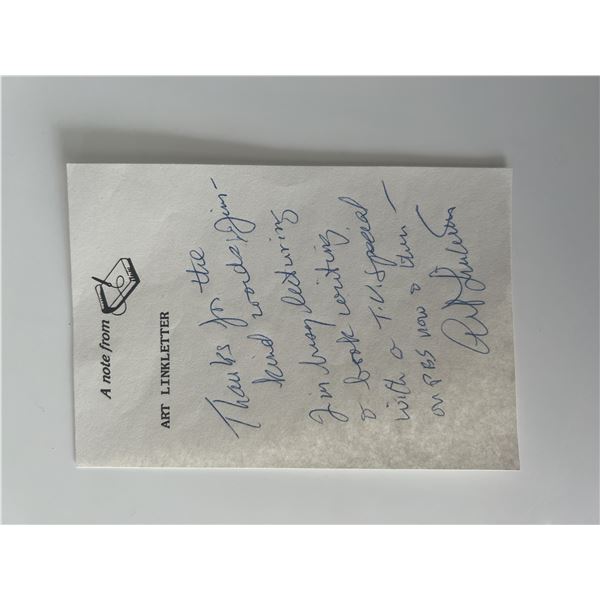 A note from
ART LINKLETTER
Thanks for the
kind words, Jim -
I'm busy lecturing
& book writing
with a T.V. Special
on PBS now & then -
Art Linkletter